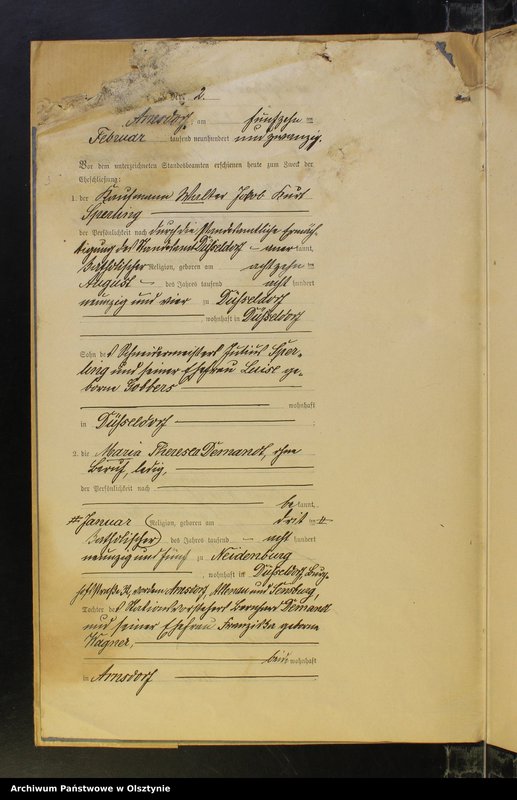 Nr. 2.
Arnsdorf, am fünfzehn ten
Februar tausend neunhundert und zwanzig.
Vor dem unterzeichneten Standesbeamten erschienen heute zum Zweck der
Eheschließung:
1. der Kaufmann Walter Jacob Kurt
Sperling
der Persönlichkeit nach durch die standesamtliche Ermäch-
tigung des Standesamt Düsseldorf - aner kannt,
katholischer Religion, geboren am achtzehn ten
August des Jahres tausend acht hundert
neunzig und vier zu Düsseldorf
, wohnhaft in Düsseldorf
Sohn des Schneidermeisters Julius Sper-
ling und seiner Ehefrau Luise ge-
borne
wohnhaft
in Düsseldorf
2. die Maria Theresea Demandt, ohne
Beruf, ledig,
der Persönlichkeit nach
be kannt,
# Januar (Religion, geboren am drit ten #
katholischer) des Jahres tausend - acht hundert
neunzig und fünf zu Neidenburg
, wohnhaft in Düsseldorf, Burg-
hofstraße 32, vordem Arnsdorf, und Sensburg,
Tochter des Stationsvorstehers Bernhard Demandt
und seiner Ehefrau Franziska geborne
Wagner,
beide wohnhaft
in Arnsdorf
Archiwum Państwowe w Olsztynie